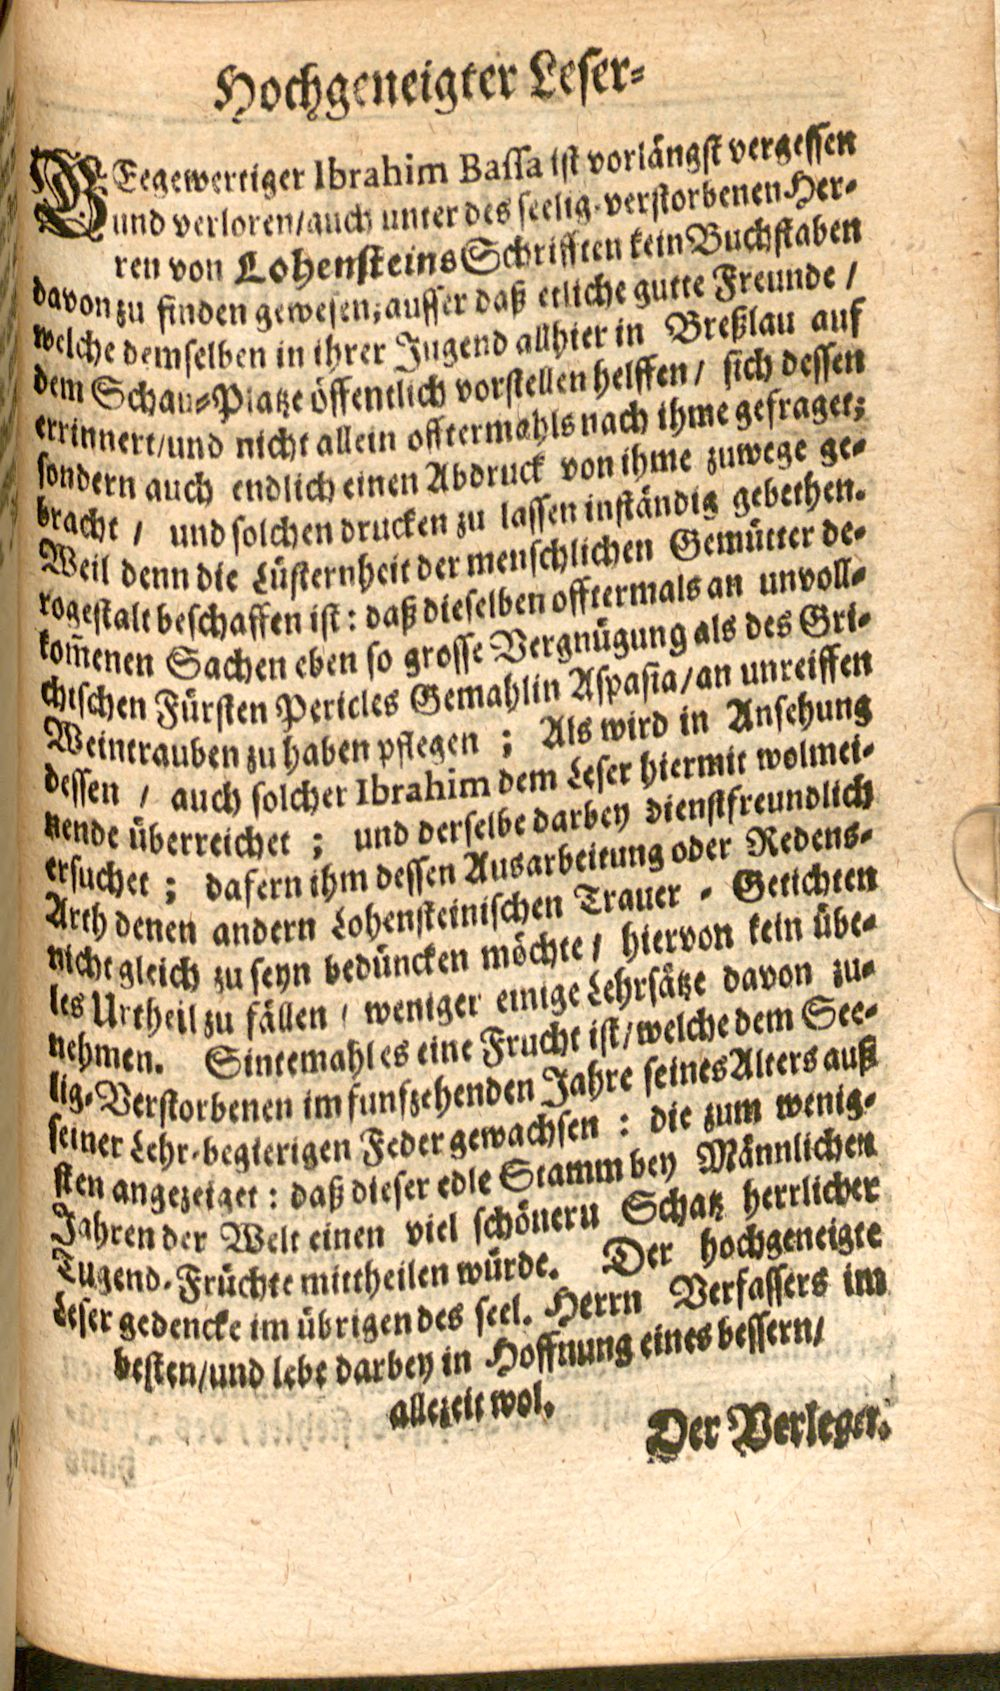 Hochgeneigter Leser-
GEegewertiger Ibrahim Bassa ist vorlängst vergessen
und verloren/auch unter des seelig-verstorbenen Her-
ren von Lohensteins Schrifften kein Buchstaben
davon zu finden gewesen; ausser daß etliche gutte Freunde /
welche demselben in ihrer Jugend allhier in Breßlau auf
dem Schau-Platze öffentlich vorstellen helffen / sich dessen
errinnert/und nicht allein offtermahls nach ihme gefraget;
sondern auch endlich einen Abdruck von ihme zuwege ge-
bracht / und solchen drucken zu lassen inständig gebethen.
Weil denn die Lüsternheit der menschlichen Gemütter de-
rogestalt beschaffen ist: daß dieselben offtermals an unvoll-
kom̃enen Sachen eben so grosse Vergnügung als des Gri-
chischen Fürsten Pericles Gemahlin Aspasia/an unreiffen
Weintrauben zu haben pflegen ; Als wird in Ansehung
dessen / auch solcher Ibrahim dem Leser hiermit wolmei-
nende überreichet ; und derselbe darbey dienstfreundlich
ersuchet ; dafern ihm dessen Ausarbeitung oder Redens-
Arth denen andern Lohensteinischen Trauer - Getichten
nicht gleich zu seyn bedüncken möchte / hiervon kein übe-
les Urtheil zu fällen / weniger einige Lehrsätze davon zu-
nehmen. Sintemahl es eine Frucht ist/welche dem See-
lig-Verstorbenen im funfzehenden Jahre seines Alters auß
seiner Lehr-begierigen Feder gewachsen : die zum wenig-
sten angezeiget : daß dieser edle Stamm bey Männlichen
Jahren der Welt einen viel schönern Schatz herrlicher
Tugend-Früchte mittheilen würde. Der hochgeneigte
Leser gedencke im übrigen des seel. Herrn Verfassers im
besten/und lebe darbey in Hoffnung eines bessern/
allezeit wol.
Der Verleger.